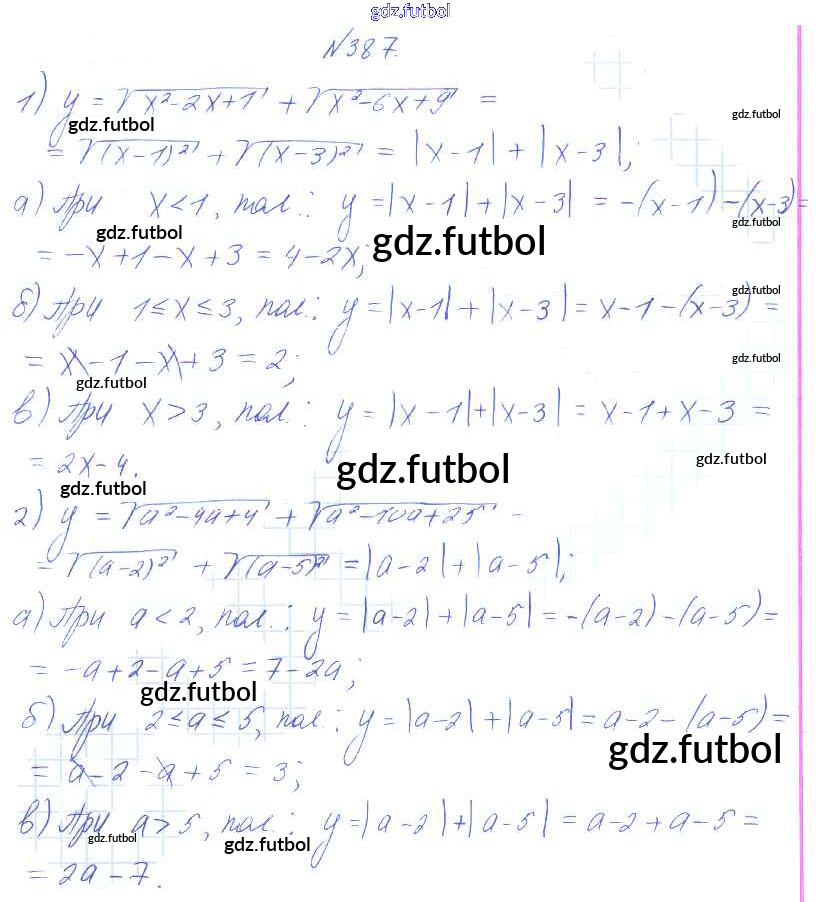 gdz.futbol
№387.
1) y = √(x²-2x+1) + √(x²-6x+9) =
gdz.futbol
gdz.futbol
= √((x-1)²) + √((x-3)²) = |x-1| + |x-3|;
а) При x<1, пол.: y = |x-1| + |x-3| = -(x-1) - (x-3) =
gdz.futbol
gdz.futbol
gdz.futbol
= -x+1-x+3 = 4-2x;
gdz.futbol
б) При 1≤x≤3, пол.: y = |x-1| + |x-3| = x-1-(x-3) =
gdz.futbol
= x-1-x+3 = 2;
gdz.futbol
в) При x>3, пол.: y = |x-1|+|x-3| = x-1+x-3 =
= 2x-4.
gdz.futbol
gdz.futbol
gdz.futbol
2) y = √(a²-4a+4) + √(a²-10a+25) =
= √((a-2)²) + √((a-5)²) = |a-2| + |a-5|;
а) При a<2, пол.: y = |a-2| + |a-5| = -(a-2)-(a-5) =
= -a+2-a+5 = 7-2a;
gdz.futbol
б) При 2≤a≤5, пол.: y = |a-2| + |a-5| = a-2-(a-5) =
gdz.futbol
= a-2-a+5 = 3;
в) При a>5, пол.: y = |a-2| + |a-5| = a-2+a-5 =
gdz.futbol
gdz.futbol
= 2a-7.